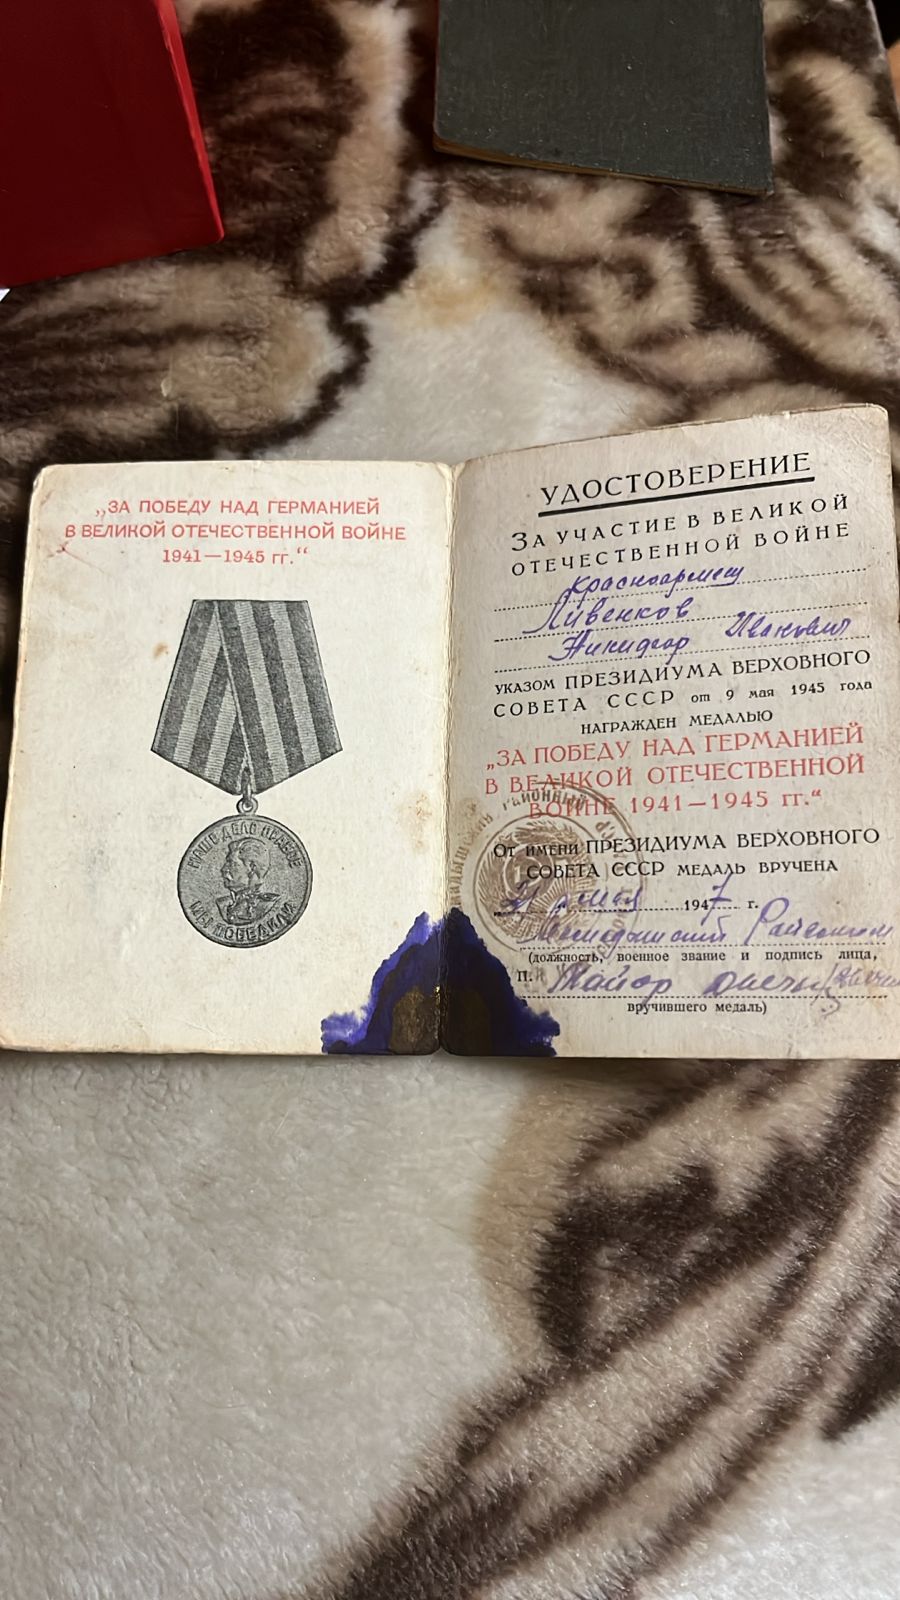 „ЗА ПОБЕДУ НАД ГЕРМАНИЕЙ
В ВЕЛИКОЙ ОТЕЧЕСТВЕННОЙ ВОЙНЕ
1941—1945 гг.“
НАШЕ ДЕЛО ПРАВОЕ
МЫ ПОБЕДИЛИ
УДОСТОВЕРЕНИЕ
ЗА УЧАСТИЕ В ВЕЛИКОЙ
ОТЕЧЕСТВЕННОЙ ВОЙНЕ
Красноармеец
Ливенков
Никифор Иванович
УКАЗОМ ПРЕЗИДИУМА ВЕРХОВНОГО
СОВЕТА СССР от 9 мая 1945 года
НАГРАЖДЕН МЕДАЛЬЮ
„ЗА ПОБЕДУ НАД ГЕРМАНИЕЙ
В ВЕЛИКОЙ ОТЕЧЕСТВЕННОЙ
ВОЙНЕ 1941—1945 гг.“
РАЙОННЫЙ
ОТ ИМЕНИ ПРЕЗИДИУМА ВЕРХОВНОГО
СОВЕТА СССР МЕДАЛЬ ВРУЧЕНА
21 мая 1947 г.
(должность, военное звание и подпись лица,
П. Майор
вручившего медаль)